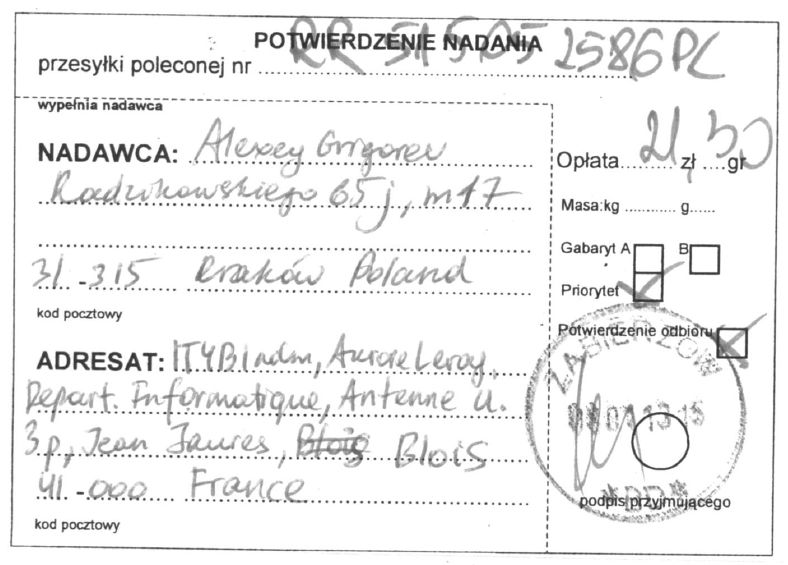 POTWIERDZENIE NADANIA
przesyłki poleconej nr RR 515105 2586PL
wypełnia nadawca
NADAWCA: Alexey Grigorev
Radzikowskiego 65j, m 17
31-315 Kraków Poland
kod pocztowy
ADRESAT: IT4BI adm, Aurore Leroy,
Depart. Informatique, Antenne U.
3 p, Jean Jaures, Blois Blois
41-000 France
kod pocztowy
Opłata 21 zł 30 gr
Masa: kg g
Gabaryt A B
Priorytet
Potwierdzenie odbioru
ZABIERZÓW
podpis przyjmującego